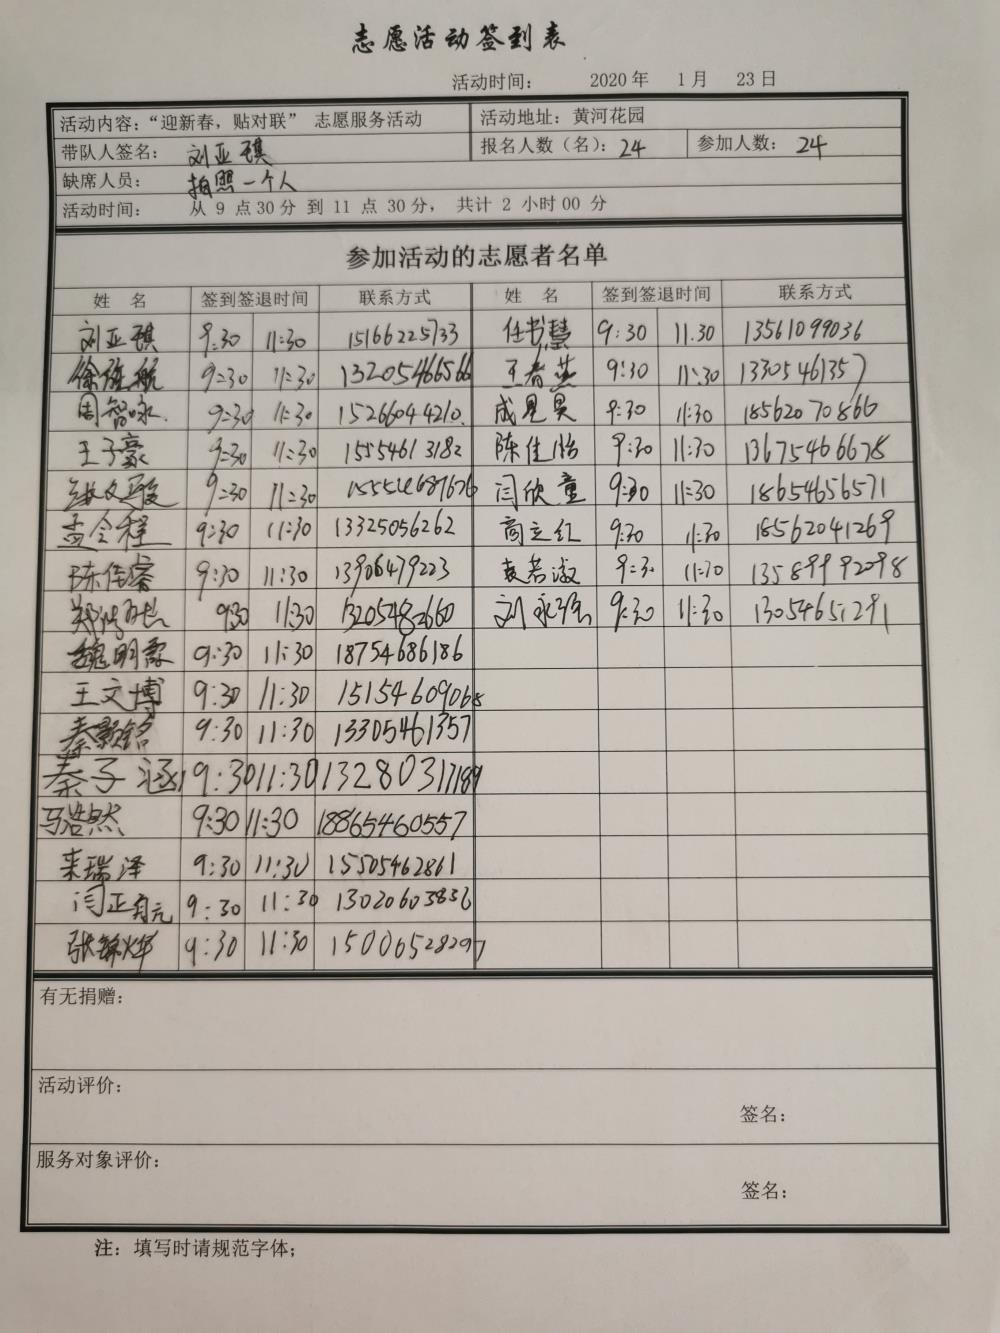 志愿活动签到表
活动时间： 2020年 1月 23日
活动内容：“迎新春，贴对联” 志愿服务活动 活动地址：黄河花园
带队人签名： 刘亚琪 报名人数（名）：24 参加人数： 24
缺席人员： 拍照一个人
活动时间： 从 9 点30分 到 11 点 30分， 共计 2 小时00 分
参加活动的志愿者名单
姓 名 签到签退时间 联系方式 姓 名 签到签退时间 联系方式
刘亚琪 9:30 11:30 15166225733 任书慧 9:30 11:30 13561099036
徐 航 9:30 11:30 13205466566 王春燕 9:30 11:30 13305461357
周智咏 9:30 11:30 15266044210 成昱昊 9:30 11:30 18562070866
王子豪 9:30 11:30 15554613182 陈佳怡 9:30 11:30 13675466678
9:30 11:30 闫欣童 9:30 11:30 18654656571
孟令程 9:30 11:30 13325056262 商立红 9:30 11:30 18562041269
陈佳睿 9:30 11:30 13906479223 袁若淑 9:30 11:30 13589992098
郑 9:30 11:30 13205482660 刘永强 9:30 11:30 13054651291
魏明 9:30 11:30 18754686186
王文博 9:30 11:30 15154609068
秦颢铭 9:30 11:30 13305461357
秦子涵 9:30 11:30 13280317189
马浩然 9:30 11:30 18865460557
来瑞泽 9:30 11:30 15505462861
闫正 9:30 11:30 13020603836
张锦烨 9:30 11:30 15006528297
有无捐赠：
活动评价：
签名：
服务对象评价：
签名：
注：填写时请规范字体；